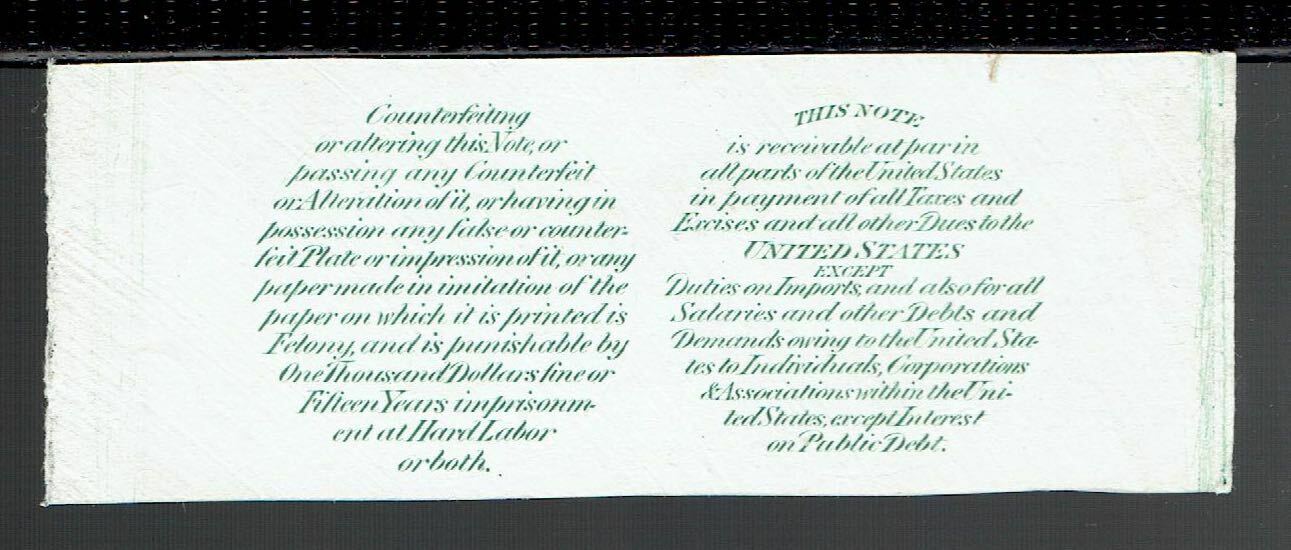 Counterfeiting
or altering this Note, or
passing any Counterfeit
or Alteration of it, or having in
possession any false or counter-
feit Plate or impression of it, or any
paper made in imitation of the
paper on which it is printed is
Felony, and is punishable by
One Thousand Dollars fine or
Fifteen Years imprisonm-
ent at Hard Labor
or both.
THIS NOTE
is receivable at par in
all parts of the United States
in payment of all Taxes and
Excises and all other Dues to the
UNITED STATES
EXCEPT
Duties on Imports, and also for all
Salaries and other Debts and
Demands owing to the United Sta-
tes to Individuals, Corporations
& Associations within the Uni-
ted States, except Interest
on Public Debt.